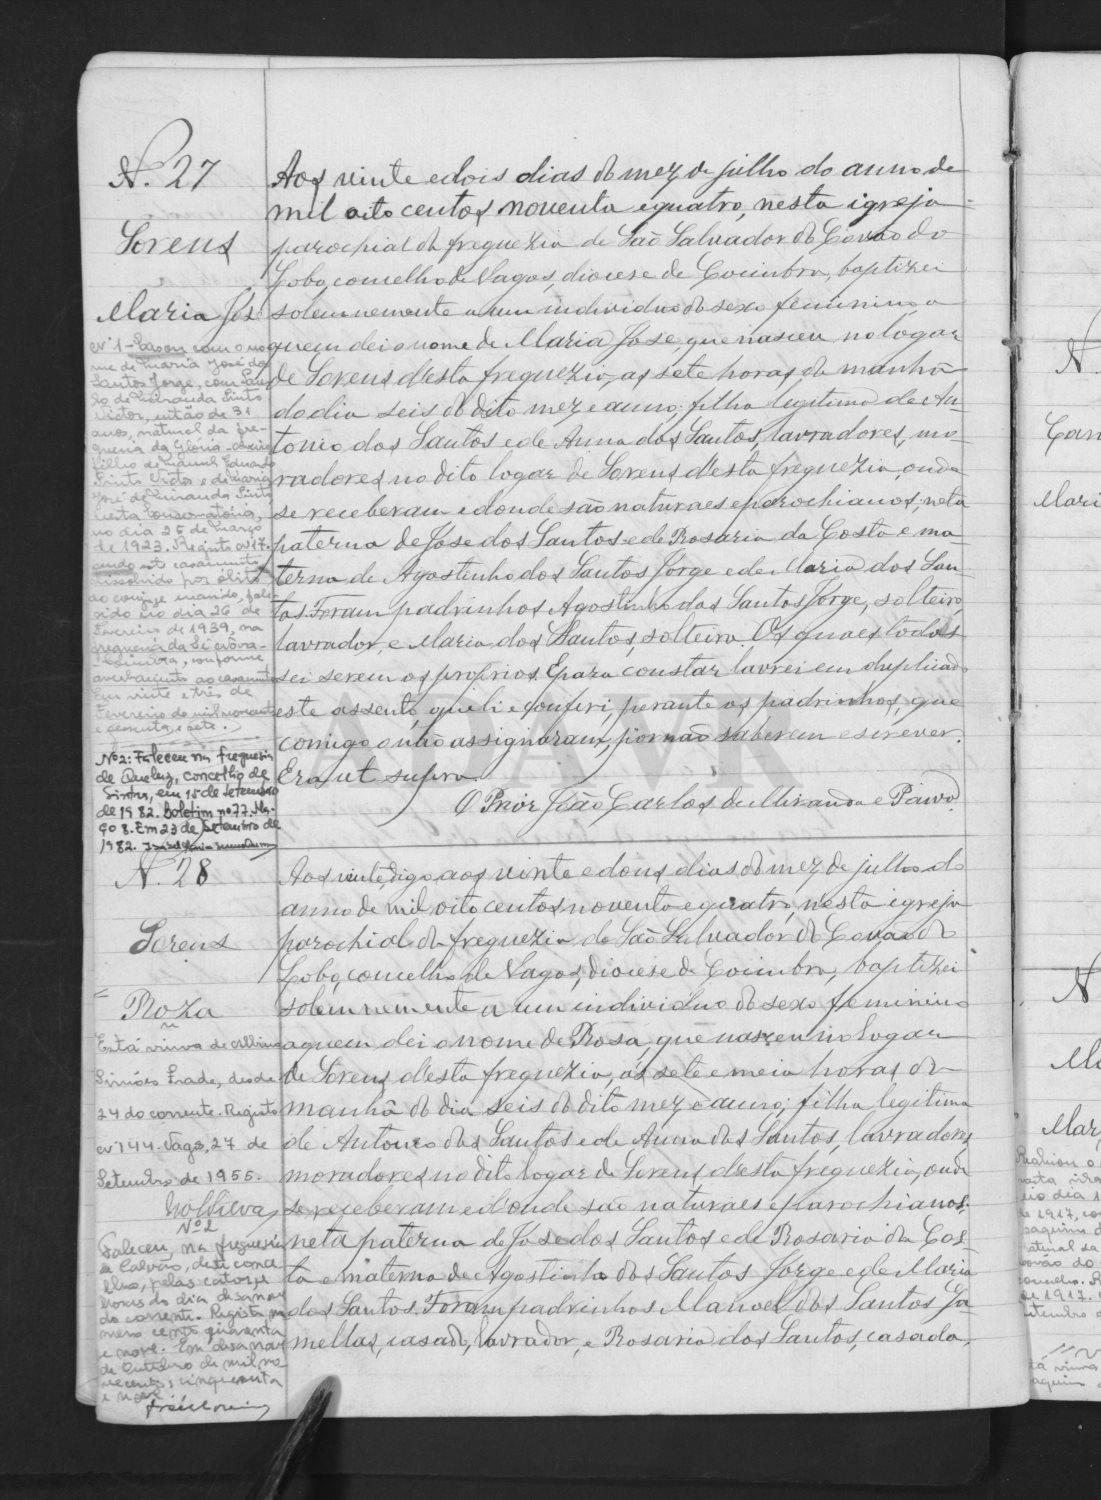 N. 27
Sorens
Maria José
Nº 1 - Casou com o no-
me de Maria José dos
Santos Jorge, com
de Miranda Pinto
Victor, então de 31
anos, natural da fre-
guesia da Glória - Aveiro
filho de Manuel Eduardo
Pinto Victor e de Maria
José de Miranda Pinto
nesta Conservatória,
no dia 25 de Março
de 1923. Registo nº 17.
casamento
dissolvido por óbito
do conjuge marido, fale-
cido no dia 26 de
Fevereiro de 1939, na
freguesia da Sé Nova -
Coimbra, conforme
averbamento ao casamento
Em vinte e três de
Fevereiro de mil novecentos
e sessenta e sete.
Nº 2: Faleceu na freguesia
de Queluz, concelho de
Sintra, em 15 de Setembro
de 1982. Boletim nº 77. Ma-
ço 8. Em 23 de Setembro de
1982.
Aos vinte e dois dias do mez de julho do anno de
mil oito centos noventa e quatro, nesta igreja
parochial da freguezia de São Salvador do Covão do
Lobo, concelho de Vagos, diocese de Coimbra, baptizei
solemnemente a um individuo do sexo feminino, a
quem dei o nome de Maria José, que nasceu no logar
de Sorens d'esta freguezia, as sete horas da manhã
do dia seis do dito mez e anno; filha legitima de An-
tonio dos Santos e de Anna dos Santos, lavradores, mo-
radores no dito logar de Sorens d'esta freguezia, onde
se receberam e donde são naturaes e parochianos, neta
paterna de José dos Santos e de Rosaria da Costa e ma-
terna de Agostinho dos Santos Jorge e de Maria dos San-
tos. Foram padrinhos Agostinho dos Santos Jorge, solteiro,
lavrador, e Maria dos Santos, solteira. Os quaes todos
sei serem os proprios. E para constar lavrei em duplicado
este assento, que li e conferi, perante os padrinhos, que
comigo não assignaram, por não saberem escrever.
Era ut supra
O Prior João Carlos de Miranda e Paiva
N. 28
Sorens
Roza
Está viuva de Albino
Simões Frade, desde
24 do corrente. Registo
nº 144. Vagos, 27 de
Setembro de 1955.
Nº 2
Faleceu, na freguesia
de Calvão, deste conce
lho, pelas catorze
horas do dia desanove
do corrente. Registo nu
mero cento quarenta
e nove. Em desanove
de Outubro de mil no
vecentos cinquenta
e nove
Aos vinte, digo, aos vinte e dous dias do mez de julho do
anno de mil oito centos noventa e quatro, nesta igreja
parochial da freguezia de São Salvador do Covão do
Lobo, concelho de Vagos, diocese de Coimbra, baptizei
solemnemente a um individuo do sexo feminino
a quem dei o nome de Rosa, que nasceu no logar
de Sorens d'esta freguezia, ás sete e meia horas da
manhã do dia seis do dito mez e anno; filha legitima
de Antonio dos Santos e de Anna dos Santos, lavradores,
moradores no dito logar de Sorens, d'esta freguezia, onde
se receberam e d'onde são naturaes e parochianos;
neta paterna de José dos Santos e de Rosaria da Cos-
ta e materna de Agostinho dos Santos Jorge e de Maria
dos Santos. Foram padrinhos Manoel dos Santos Ja-
mellas, casado, lavrador, e Rosaria dos Santos, casada,
ADAVR
N.
Mari
N